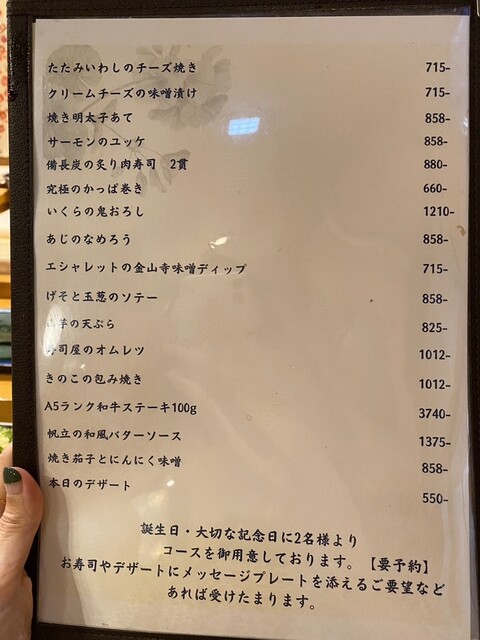 たたみいわしのチーズ焼き 715-
クリームチーズの味噌漬け 715-
焼き明太子あて 858-
サーモンのユッケ 858-
備長炭の炙り肉寿司 2貫 880-
究極のかっぱ巻き 660-
いくらの鬼おろし 1210-
あじのなめろう 858-
エシャレットの金山寺味噌ディップ 715-
げそと玉葱のソテー 858-
芋の天ぷら 825-
司屋のオムレツ 1012-
きのこの包み焼き 1012-
A5ランク和牛ステーキ100g 3740-
帆立の和風バターソース 1375-
焼き茄子とにんにく味噌 858-
本日のデザート 550-
誕生日・大切な記念日に2名様より
コースを御用意しております。【要予約】
お寿司やデザートにメッセージプレートを添えるご要望など
あれば受けたまります。